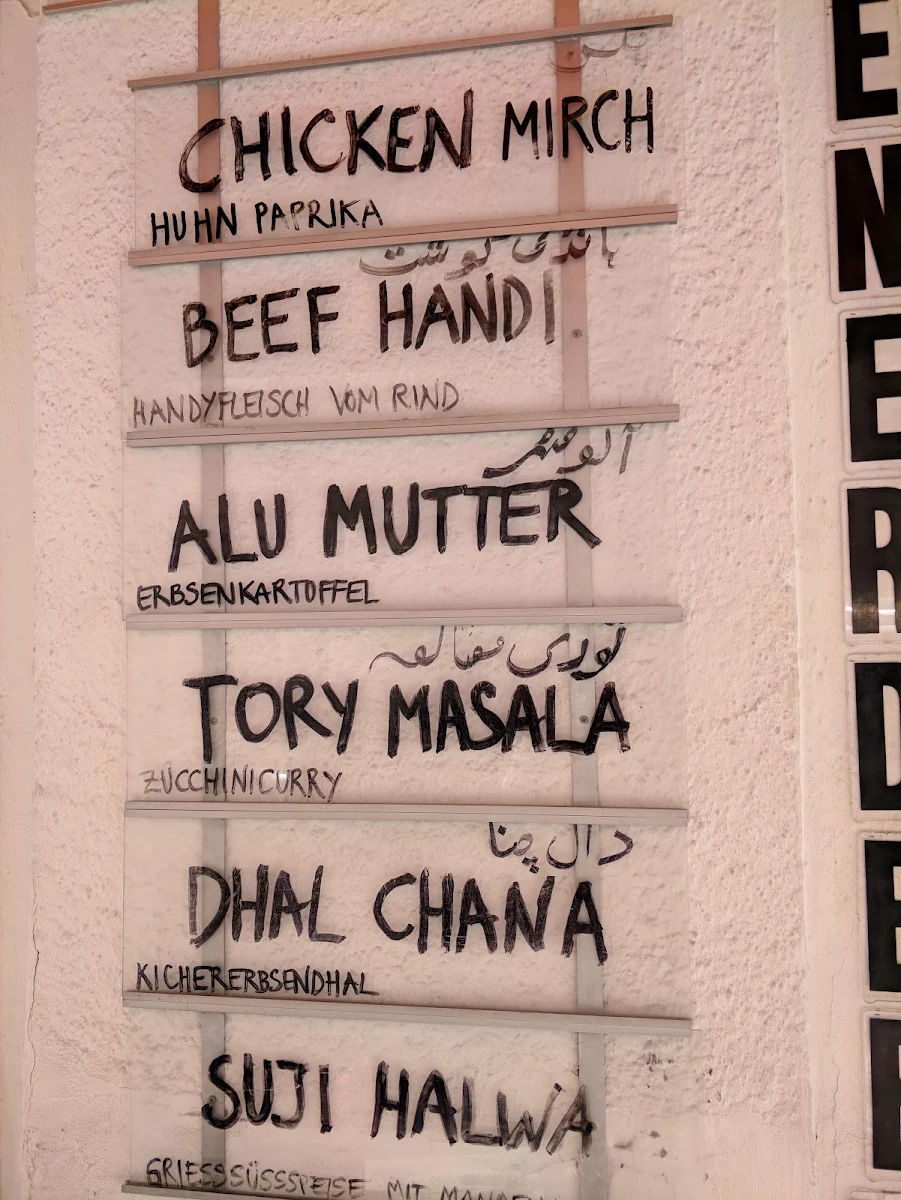 CHICKEN MIRCH
HUHN PAPRIKA
ہانڈی گوشت
BEEF HANDI
HANDYFLEISCH VOM RIND
آلو مٹر
ALU MUTTER
ERBSENKARTOFFEL
توری مصالحہ
TORY MASALA
ZUCCHINICURRY
دال چنا
DHAL CHANA
KICHERERBSENDHAL
SUJI HALWA
GRIESSSÜSSSPEISE MIT
E
N
E
R
D
E